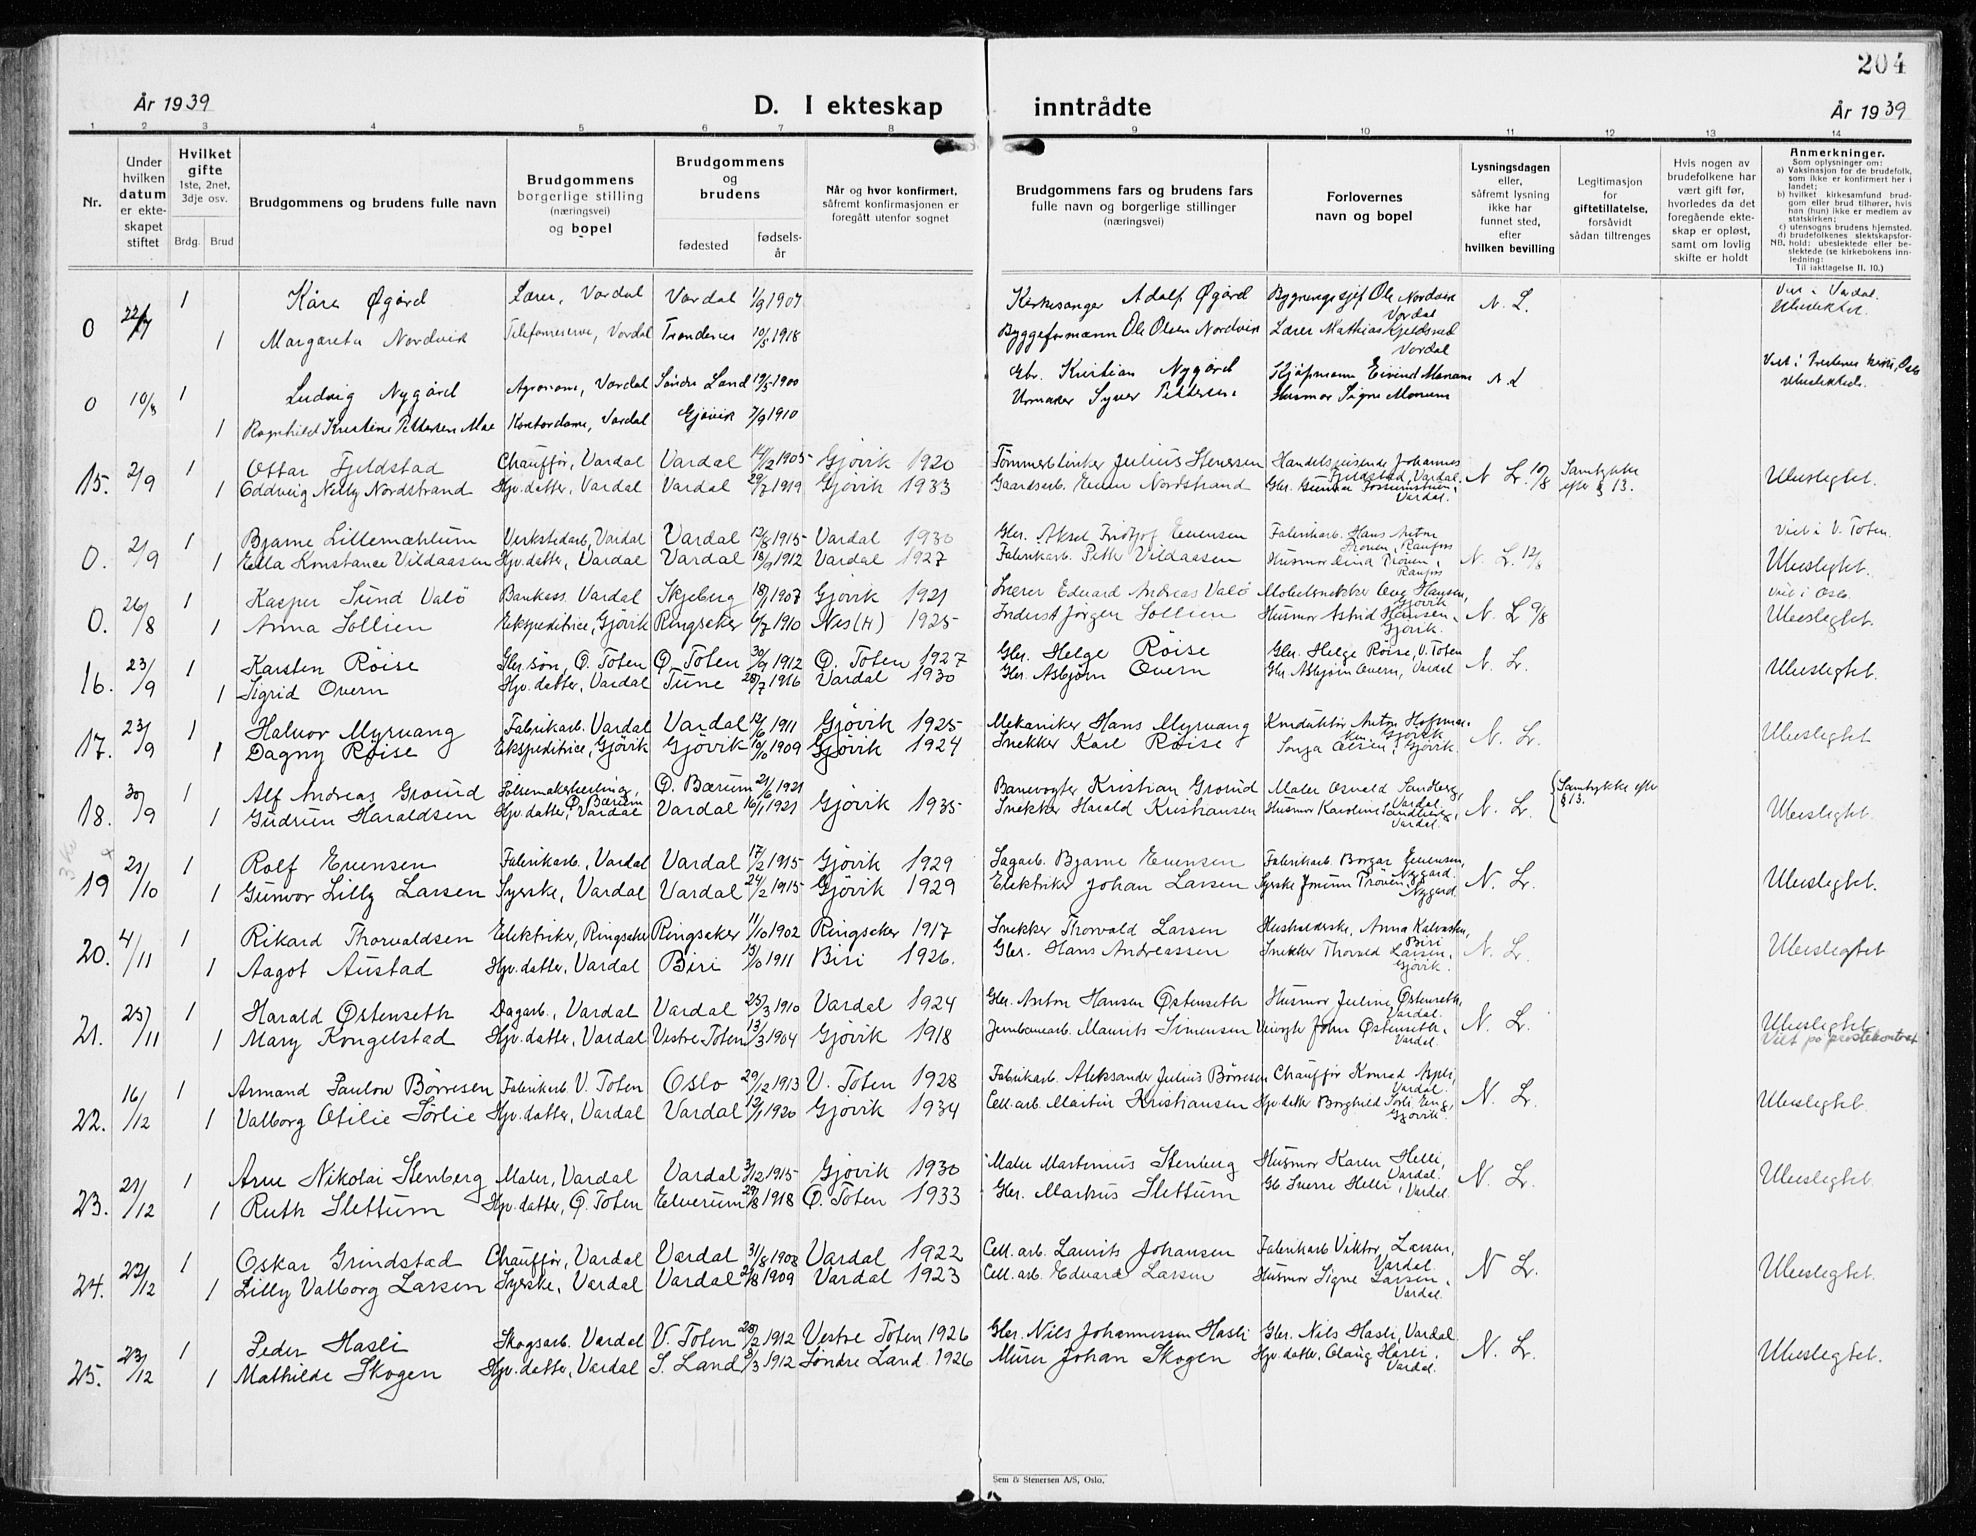 204
År 1939
D. I ekteskap inntrådte
År 1939
1 2 3 4 5 6 7 8 9 10 11 12 13 14
Nr.
Under hvilken datum er ekteskapet stiftet
Hvilket gifte 1ste, 2net, 3dje osv.
Brdg. Brud
Brudgommens og brudens fulle navn
Brudgommens borgerlige stilling (næringsvei) og bopel
Brudgommens og brudens
fødested fødselsår
Når og hvor konfirmert, såfremt konfirmasjonen er foregått utenfor sognet
Brudgommens fars og brudens fars fulle navn og borgerlige stillinger (næringsvei)
Forlovernes navn og bopel
Lysningsdagen eller, såfremt lysning ikke har funnet sted, efter hvilken bevilling
Legitimasjon for giftetillatelse, forsåvidt sådan tiltrenges
Hvis nogen av brudefolkene har vært gift før, hvorledes da det foregående ekteskap er opløst, samt om lovlig skifte er holdt
Anmerkninger.
Som oplysninger om:
a) Vaksinasjon for de brudefolk, som ikke er konfirmert her i landet;
b) hvilket kirkesamfund brudgom eller brud tilhører, hvis han (hun) ikke er medlem av statskirken;
c) utensogns brudens hjemsted.
d) brudefolkenes slektskapsforhold: ubeslektede eller beslektede (se kirkebokens innledning:
NB.
Til iakttagelse II. 10.)
0 22/7 1 Kåre Øgård Lærer, Vardal Vardal 1/9 1907 Kirkesanger Adolf Øgård Bygningssjef Ole Nordvik Vardal N. L. Viet i Vardal. Ubeslektet.
1 Margareta Nordvik Telefonreserve, Vardal Trondenes 10/5 1918 Byggeformann Ole Olsen Nordvik Lærer Mathias Kjeldsved Vardal
0 10/8 1 Ludvig Nygård Agronom, Vardal Søndre Land 19/5 1900 Gbr. Kristian Nygård Kjøpmann Eivind Monum N. L. Viet i Kirke, Oslo Ubeslektede.
1 Ragnhild Kristine Pettersen Moe Kontordame, Vardal Gjøvik 7/9 1910 Urmaker Syver Pettersen Husmor Signe Monum
15. 2/9 1 Ottar Fjeldstad Chauffør, Vardal Vardal 14/2 1905 Gjøvik 1920 Tømmerblinker Julius Stenersen Handelsreisende Johannes Fjeldstad, Vardal. N. L. 10/8 Samtykke efter § 13. Ubeslegtet.
1 Eddveig Nelly Nordstrand Hjv. datter, Vardal Vardal 29/7 1919 Gjøvik 1933 Gaardsarb. Einar Nordstrand Gbr. Gunnar Vardal.
0. 2/9 1 Bjarne Lillemæhlum Verkstedarb, Vardal Vardal 12/8 1915 Vardal 1930 Gbr. Aksel Fridtjof Evensen Fabrikarb. Hans Anton Trøen, Raufoss N. L. 12/8 Viet i V. Toten. Ubeslegtet.
1 Ella Konstance Vildaasen Hjv. datter, Vardal Vardal 18/9 1912 Vardal 1927 Fabrikarb. Petter Vildaasen Husmor Trøen, Raufoss
0. 26/8 1 Kasper Sund Valø Bankass. Vardal Skjeberg 18/1 1907 Gjøvik 1921 Lærer Edvard Andreas Valø Møbelsnekker Aug Hansen, Gjøvik N. L. 9/8 Viet i Oslo. Ubeslegtet.
1 Anna Sollien Ekspeditrice, Gjøvik Ringsaker 6/7 1910 Nes (H) 1925 Inderst Jørgen Sollien Husmor Astrid Hansen, Gjøvik.
16. 23/9 1 Karsten Røise Gbr. søn, Ø. Toten Ø. Toten 30/9 1912 Ø. Toten 1927 Gbr. Helge Røise Gbr. Helge Røise, V. Toten N. L. Ubeslegtet.
1 Sigrid Overn Hjv. datter, Vardal Tune 28/7 1916 Vardal 1930 Gbr. Asbjørn Overn Gbr. Asbjørn Overn, Vardal
17. 23/9 1 Halvor Myrvang Fabrikarb. Vardal Vardal 12/6 1911 Gjøvik 1925 Mekaniker Hans Myrvang Konduktør Anton Gjøvik N. L. Ubeslegtet
1 Dagny Røise Ekspeditrice, Gjøvik Gjøvik 10/10 1909 Gjøvik 1924 Snekker Karl Røise Sonja Olsen, Gjøvik.
18. 30/9 1 Alf Andreas Grorud Pølsemakerlærling, Ø. Bærum Ø. Bærum 21/6 1921 Banevogter Kristian Grorud Maler Osvald Sandberg, Vardal N. L. {Samtykke efter § 13. Ubeslegtet.
1 Gudrun Haraldsen Hjv. datter, Vardal Vardal 16/1 1921 Gjøvik 1935 Snekker Harald Kristiansen Husmor Karoline Sandberg, Vardal.
19 21/10 1 Rolf Evensen Fabrikarb., Vardal Vardal 17/2 1915 Gjøvik 1929 Sagarb. Bjarne Evensen Fabrikarb. Borgar Evensen, Nygard. N. L. Ubeslegtet.
1 Gunvor Lilly Larsen Syerske, Vardal Vardal 24/2 1915 Gjøvik 1929 Elektriker Johan Larsen Syerske Jorunn Trøen, Nygard
20. 4/11 1 Rikard Thorvaldsen Elektriker, Ringsaker Ringsaker 11/10 1902 Ringsaker 1917 Snekker Thorvald Larsen Husholderske, Anna Biri N. L. Ubeslegtet
1 Aagot Austad Hjv. datter, Vardal Biri 13/10 1911 Biri 1926. Gbr. Hans Andreassen Snekker Thorvald Larsen, Gjøvik.
21. 25/11 1 Harald Østenseth Dagarb., Vardal Vardal 25/3 1910 Vardal 1924 Gbr. Anton Hansen Østenseth Husmor Juline Østenseth, Vardal. N. L. Ubeslegtet
1 Mary Kongelstad Hjv. datter, Vardal Vestre Toten 13/3 1904 Gjøvik 1918 Jernbanearb. Maurits Simensen John Østenseth, Vardal. Viet på prestekontoret
22. 16/12 1 Armand Paulow Børresen Fabrikarb. V. Toten Oslo 29/12 1913 V. Toten 1928 Fabrikarb. Aleksander Julius Børresen Chauffør Konrad Vardal. N. L. Ubeslegtet.
1 Valborg Otilie Sørlie Hjv. datter, Vardal Vardal 12/1 1920 Gjøvik 1934 Cell. arb. Martin Kristiansen Hjv. datter Borghild Gjøvik.
23. 21/12 1 Arne Nikolai Stenberg Maler, Vardal Vardal 3/12 1915 Gjøvik 1930 Maler Martinius Stenberg Husmor Karen Helli, Vardal. N. L. Ubeslegtet.
1 Ruth Slettum Hjv. datter, Ø. Toten Elverum 29/8 1918 Ø. Toten 1933 Gbr. Markus Slettum Gb. Sverre Helli, Vardal.
24. 22/12 1 Oskar Grindstad Chauffør, Vardal Vardal 31/8 1908 Vardal 1922 Cell. arb. Laurits Johansen Fabrikarb Viktor Larsen, Vardal. N L. Ubeslegtet.
1 Lilly Valborg Larsen Syerske, Vardal Vardal 21/8 1909 Vardal 1923 Cell. arb. Edvard Larsen Husmor Signe Larsen, Vardal.
25. 23/12 1 Peder Hasli Skogsarb. Vardal V. Toten 28/2 1912 Vestre Toten 1926 Gbr. Nils Johannessen Hasli Gbr. Nils Hasli, Vardal. N. L. Ubeslegtet.
1 Mathilde Skogen Hjv. datter, Vardal S. Land 3/3 1912 Søndre Land. 1926 Murer Johan Skogen Hjv. datter, Olaug Hasli, Vardal.
Sem & Stenersen A/S, Oslo.